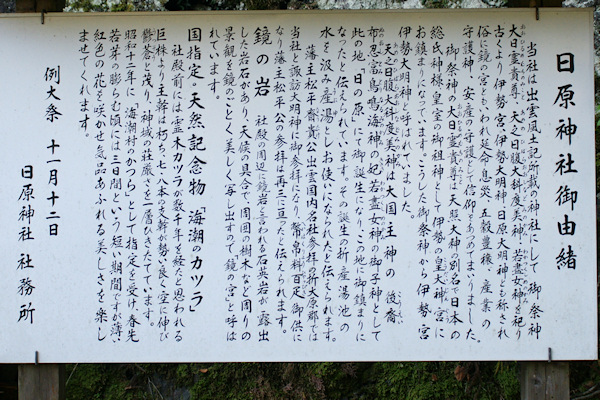 日原神社御由緒
当社は出雲風土記所載の神社にして御祭神
大日霊貴尊、天之日腹大科度美神、若晝女神を祀り
古くより伊勢宮、伊勢大明神、日原大明神とも称され
俗に鏡の宮ともいわれ延命息災、五穀豊穣、産業の
守護神、安産の守護として信仰をあつめてまいりました。
御祭神の大日霊貴尊は天照大神の別名で日本の
総氏神様、皇室の御祖神として伊勢の皇大神宮に
お鎮まりになっています。こうした御祭神から伊勢宮
伊勢大明神と呼ばれていました。
天之日腹大科度美神は大国主神の後裔
布忍富鳥鳴海神の妃若晝女神の御子神として
此の地、日の原にて御誕生になり、この地に御鎮まりに
なったと伝えられています。その誕生の折、産湯池の
水を汲み産湯としてお使いになられたと伝えられます。
藩主松平齋貴公出雲国内名社参拝の折大原郡では
当社と諏訪大明神に御参拝になり、幣帛料百疋御供に
なり藩主松平公の参拝は再三に亘ったと伝えられます。
鏡の岩 社殿の周辺に鏡岩と言われる石英岩が露出
した岩石があり、天候の具合で、周囲の樹木など周りの
景観を鏡のごとく美しく写し出すので鏡の宮と呼ば
れています。
国指定・天然記念物「海潮のカツラ」
社殿前には霊木カツラが数千年を経たと思われる
巨株より主幹は朽ち、七、八本の支幹が勢い良く空に伸び
鬱蒼と茂り、神域の荘厳さを一層ひきたてています。
昭和十二年に「海潮村のかつら」として指定を受け、春先
若芽の膨らむ頃には三日間という短い期間ですが薄
紅色の花を咲かせ気品あふれる美しさを楽し
ませてくれます。
例大祭 十一月十二日
日原神社 社務所